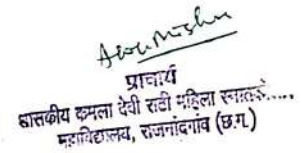 प्राचार्य
शासकीय कमला देवी राठी महिला स्नातको.....
महाविद्यालय, राजनांदगांव (छ.ग.)